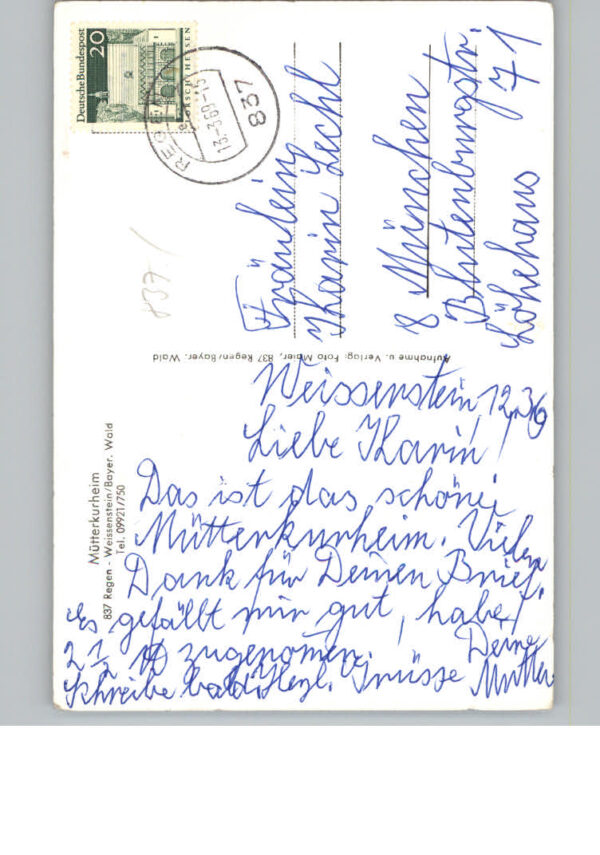 Deutsche Bundespost
20
LORSCH/HESSEN
13.3.69-15
837
837
Fräulein
Karin Lechl
8 München
Blutenburgstr.
71
Löhehaus
Aufnahme u. Verlag: Foto Maier, 837 Regen/Bayer. Wald
Mütterkurheim
837 Regen - Weissenstein/Bayer. Wald
Tel. 09921/750
Weissenstein, 12.3.69
Liebe Karin!
Das ist das schöne
Mütterkurheim. Vielen
Dank für Deinen Brief.
Es gefällt mir gut, habe
2 1/2 ℔ zugenomen.
Schreibe bald. Herzl. Grüsse Deine
Mutter